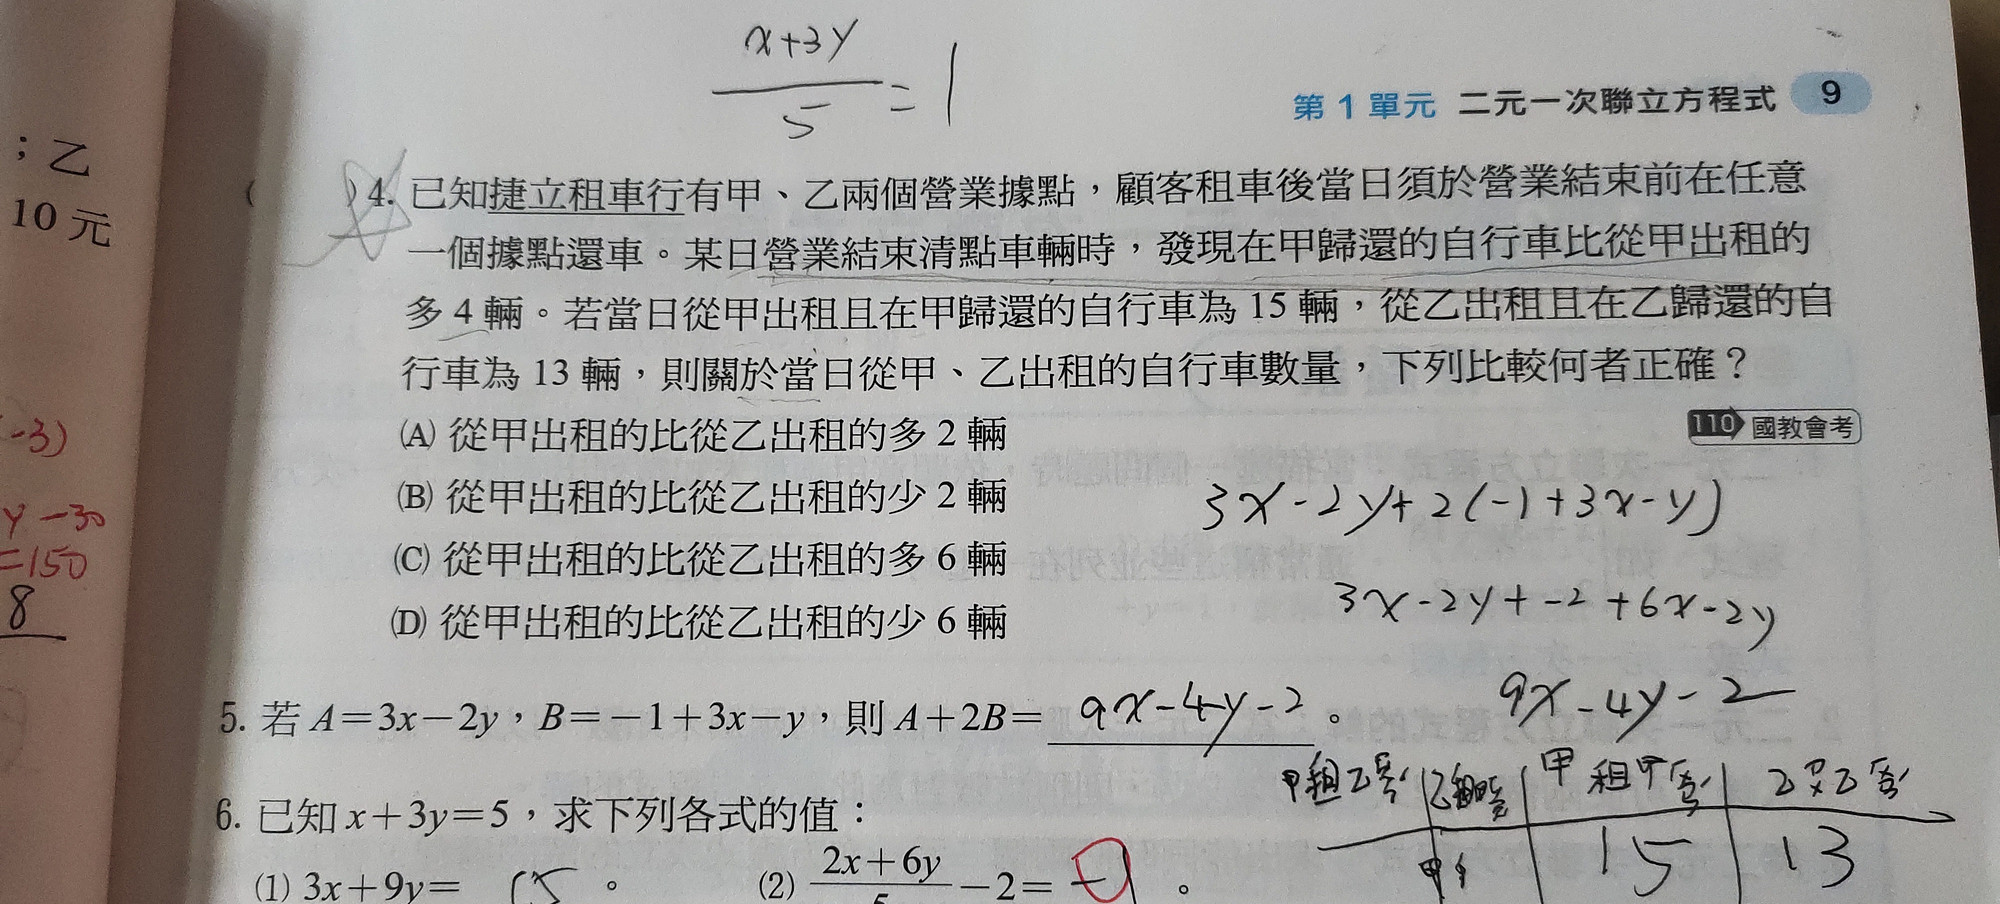 x+3y
5
= 1
第 1 單元 二元一次聯立方程式 9
；乙
10 元
-3)
y-30
=150
8
( )4. 已知捷立租車行有甲、乙兩個營業據點，顧客租車後當日須於營業結束前在任意
一個據點還車。某日營業結束清點車輛時，發現在甲歸還的自行車比從甲出租的
多 4 輛。若當日從甲出租且在甲歸還的自行車為 15 輛，從乙出租且在乙歸還的自
行車為 13 輛，則關於當日從甲、乙出租的自行車數量，下列比較何者正確？
110 國教會考
(A) 從甲出租的比從乙出租的多 2 輛
(B) 從甲出租的比從乙出租的少 2 輛
(C) 從甲出租的比從乙出租的多 6 輛
(D) 從甲出租的比從乙出租的少 6 輛
3x-2y+2(-1+3x-y)
3x-2y+-2+6x-2y
9x-4y-2
5. 若 A＝3x－2y，B＝－1＋3x－y，則 A＋2B＝ 9x-4y-2 。
甲租乙 甲租甲
15 13
6. 已知 x＋3y＝5，求下列各式的值：
(1) 3x＋9y＝ 15 。 (2) 2x＋6y
5
－2＝ -1 。